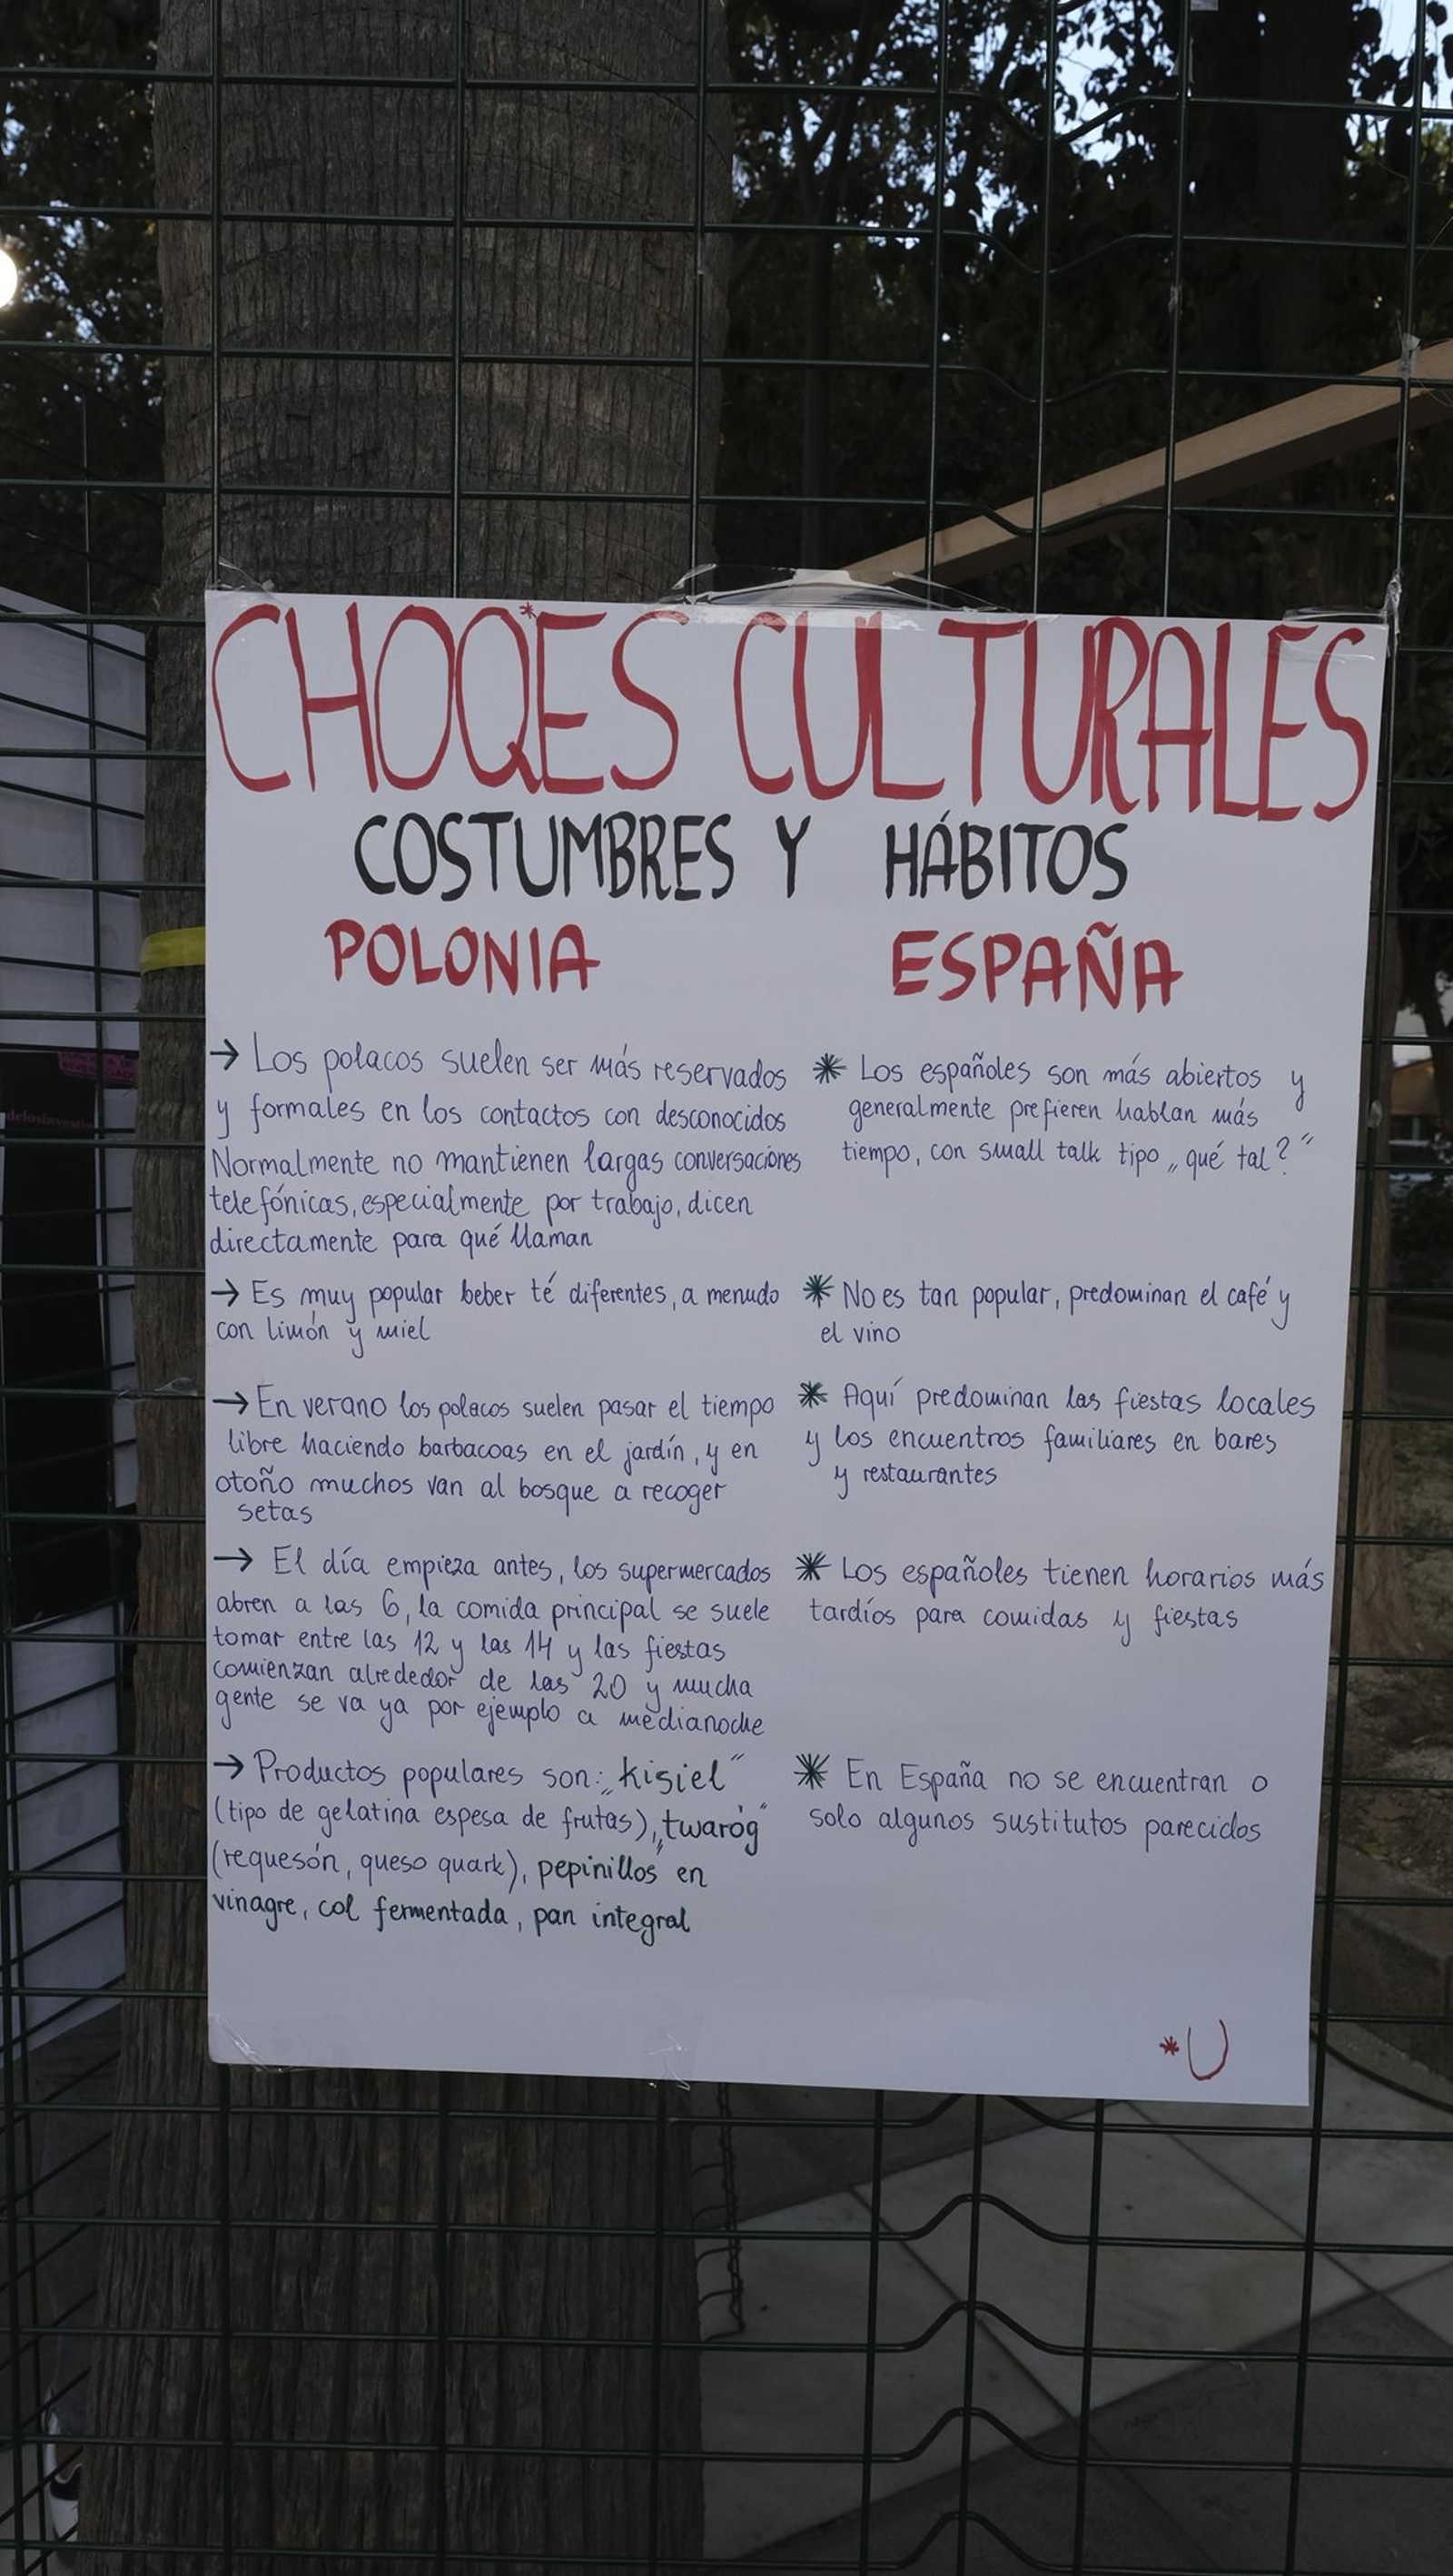 CHOQ*ES CULTURALES
COSTUMBRES Y HÁBITOS
POLONIA
→ Los polacos suelen ser más reservados
y formales en los contactos con desconocidos
Normalmente no mantienen largas conversaciones
telefónicas, especialmente por trabajo, dicen
directamente para qué llaman
→ Es muy popular beber té diferentes, a menudo
con limón y miel
→ En verano los polacos suelen pasar el tiempo
libre haciendo barbacoas en el jardín, y en
otoño muchos van al bosque a recoger
setas
→ El día empieza antes, los supermercados
abren a las 6, la comida principal se suele
tomar entre las 12 y las 14 y las fiestas
comienzan alrededor de las 20 y mucha
gente se va ya por ejemplo a medianoche
→ Productos populares son: „kisiel”
(tipo de gelatina espesa de frutas), „twaróg”
(requesón, queso quark), pepinillos en
vinagre, col fermentada, pan integral
ESPAÑA
* Los españoles son más abiertos y
generalmente prefieren hablan más
tiempo, con small talk tipo „qué tal?”
* No es tan popular, predominan el café y
el vino
* Aquí predominan las fiestas locales
y los encuentros familiares en bares
y restaurantes
* Los españoles tienen horarios más
tardíos para comidas y fiestas
* En España no se encuentran o
solo algunos sustitutos parecidos
*U